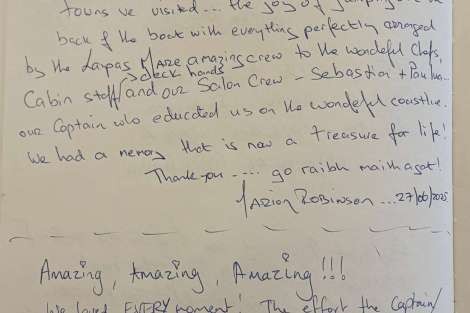 towns we visited ... the joy of jumping
back of the boat with everything perfectly arranged
by the amazing crew to the wonderful Chefs,
deck hands
Cabin staff and our Salon Crew – Sebastian +
our Captain who educated us on the wonderful coastline.
We had a memory that is now a treasure for life!
Thank-you .... go raibh maith agat!
Marion Robinson ... 27/06/2025
Amazing, Amazing, Amazing!!!
We loved EVERY moment! The effort the Captain/